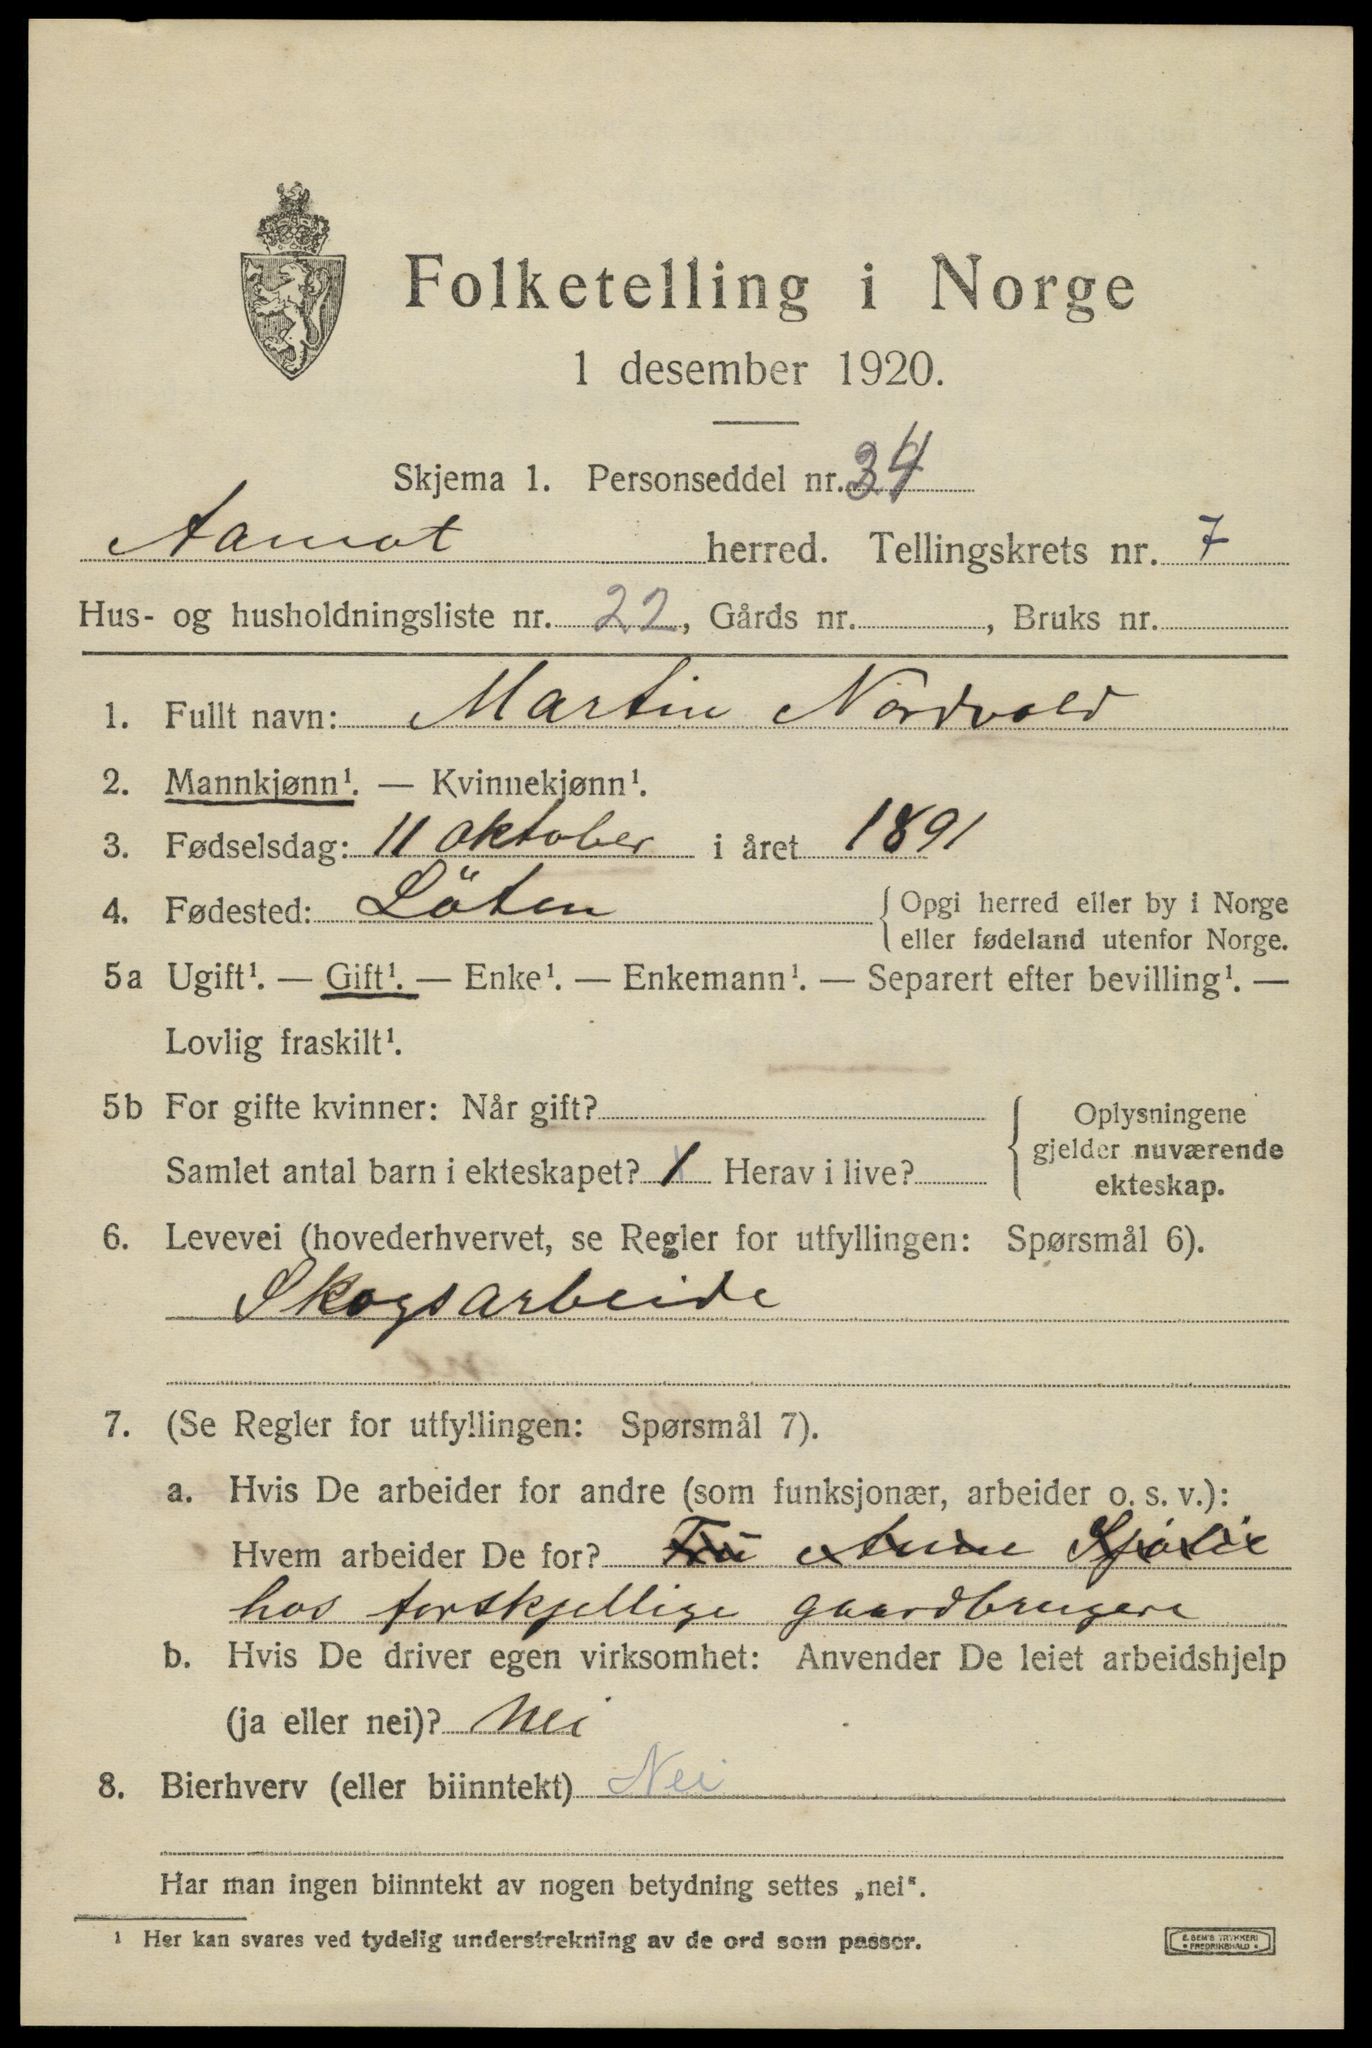 Folketelling i Norge
1 desember 1920.
Skjema 1. Personseddel nr. 34
Aamot herred. Tellingskrets nr. 7
Hus- og husholdningsliste nr. 22, Gårds nr. , Bruks nr.
1. Fullt navn: Martin Nordvold
2. Mannkjønn¹. — Kvinnekjønn¹.
3. Fødselsdag: 11 oktober i året 1891
4. Fødested: Löten {Opgi herred eller by i Norge
eller fødeland utenfor Norge.
5a Ugift¹. — Gift¹. — Enke¹. — Enkemann¹. — Separert efter bevilling¹. —
Lovlig fraskilt¹.
5b For gifte kvinner: Når gift?
Samlet antal barn i ekteskapet? 1 Herav i live?
Oplysningene
gjelder nuværende
ekteskap.
6. Levevei (hovederhvervet, se Regler for utfyllingen: Spørsmål 6).
Skogsarbeide
7. (Se Regler for utfyllingen: Spørsmål 7).
a. Hvis De arbeider for andre (som funksjonær, arbeider o. s. v.):
Hvem arbeider De for? Fru Anne Sjølie
hos forskjellige gaardbrugere
b. Hvis De driver egen virksomhet: Anvender De leiet arbeidshjelp
(ja eller nei)? Nei
8. Bierhverv (eller biinntekt) Nei
Har man ingen biinntekt av nogen betydning settes „nei".
¹ Her kan svares ved tydelig understrekning av de ord som passer.
E. SEM'S TRYKKERI
• FREDRIKSHALD •